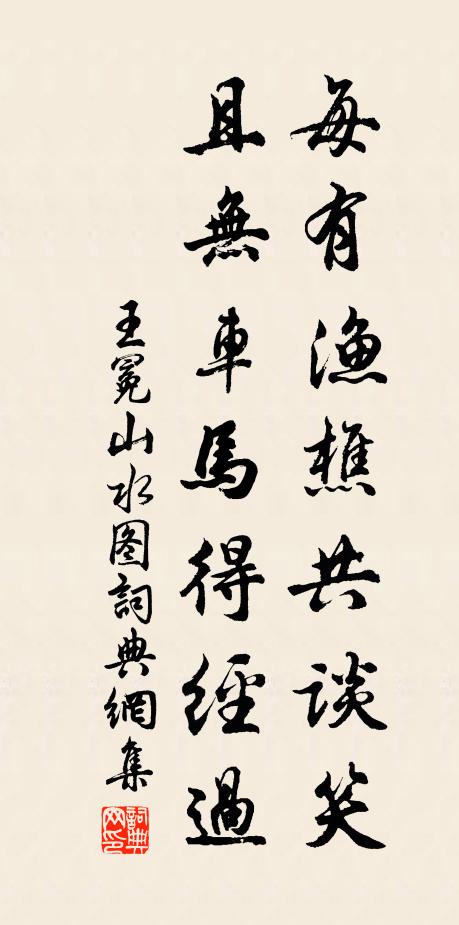 每有漁樵共談笑
且無車馬得經過
王冕山水图詞典網集
詞典网印